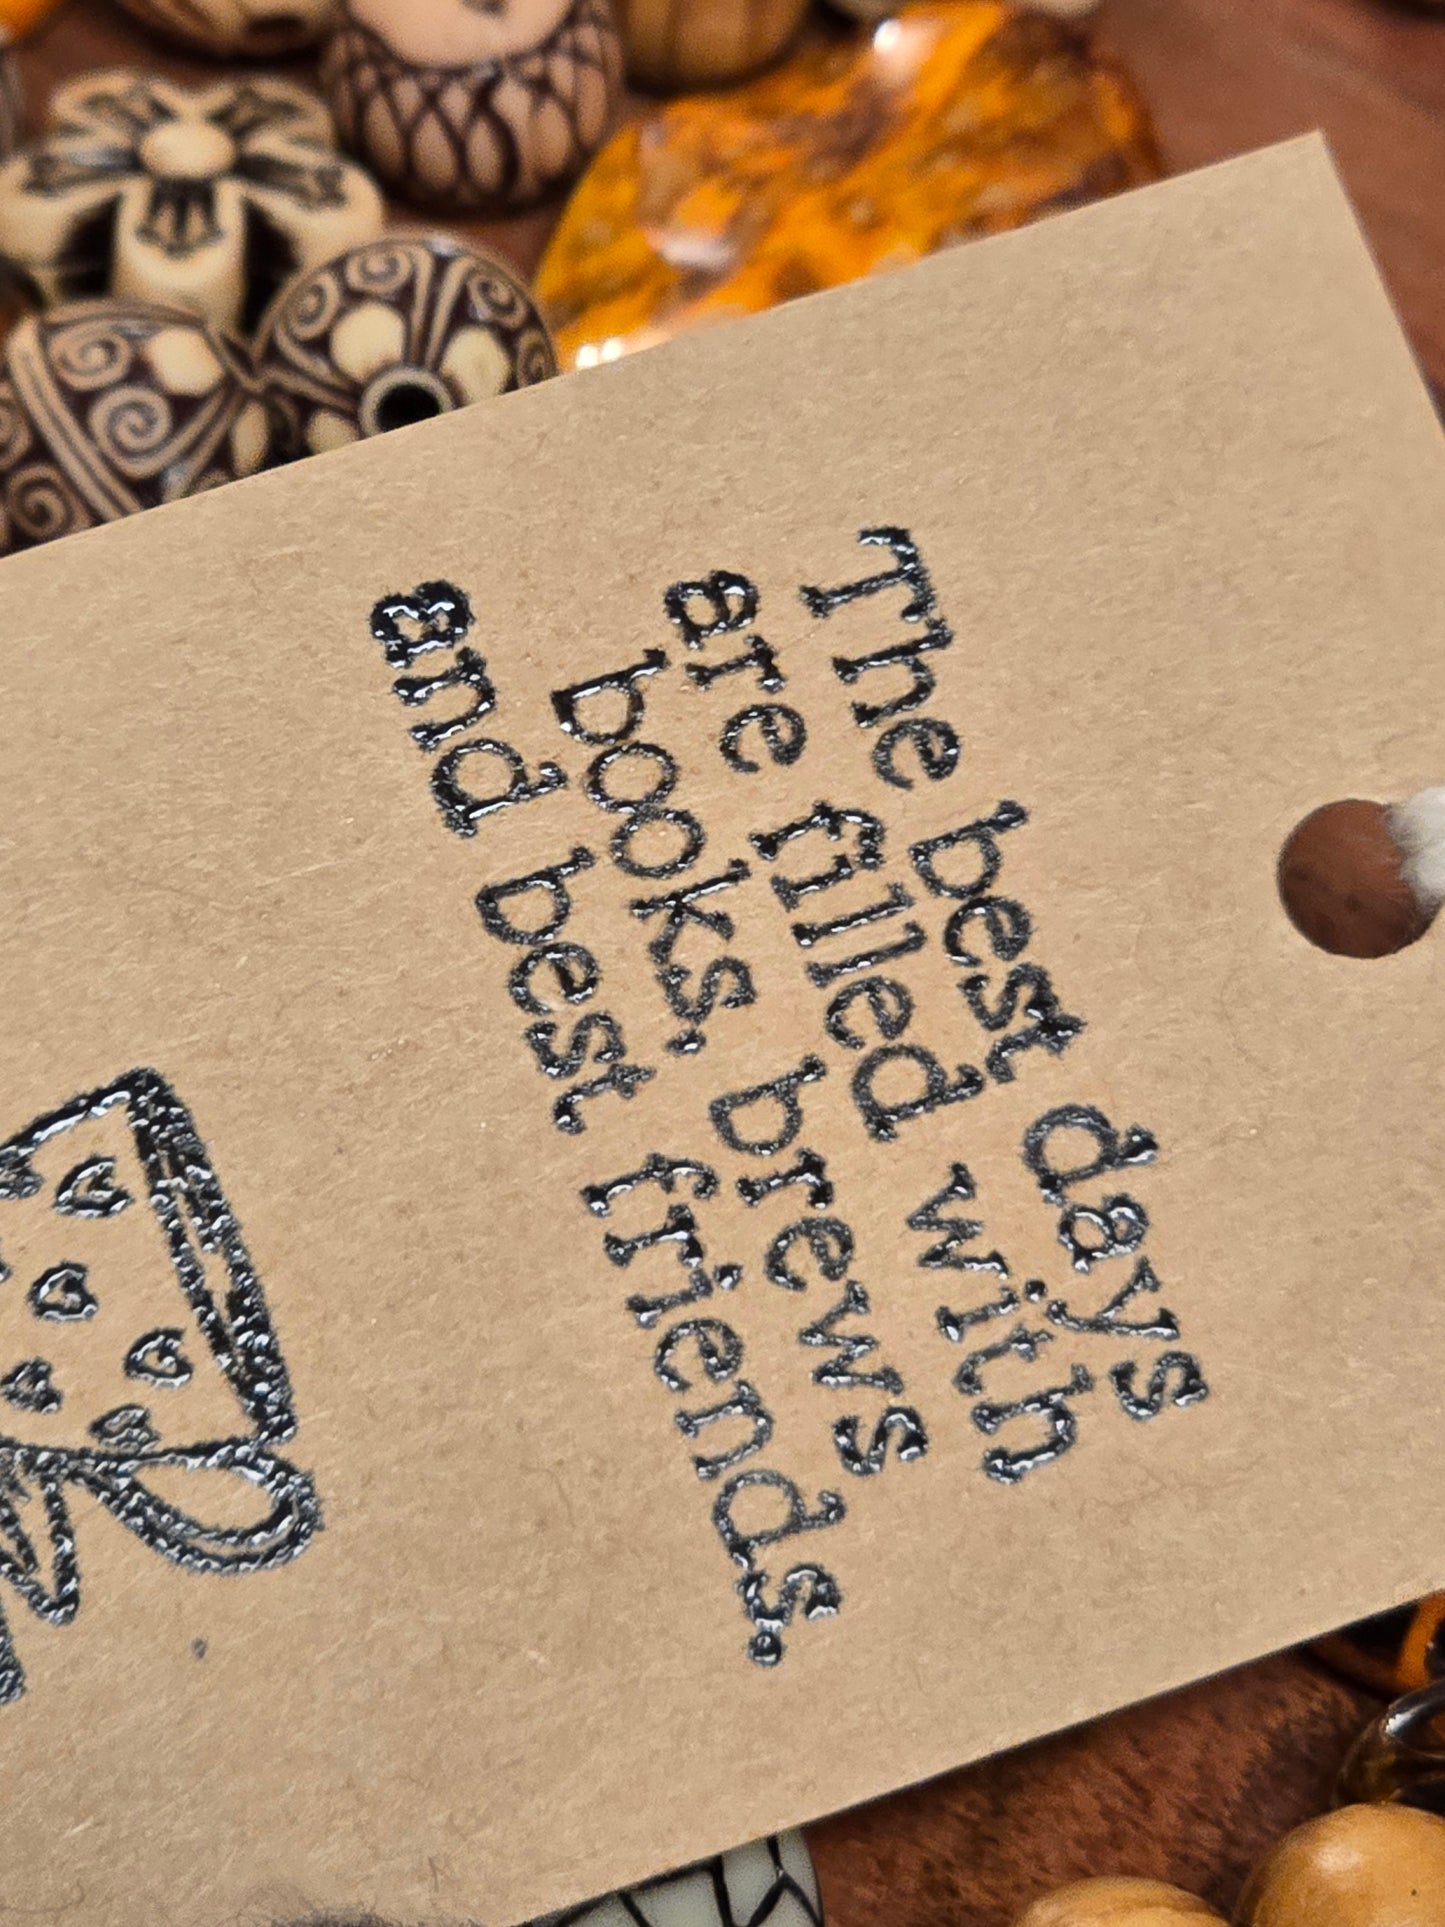 The best days
are filled with
books, brews
and best friends.